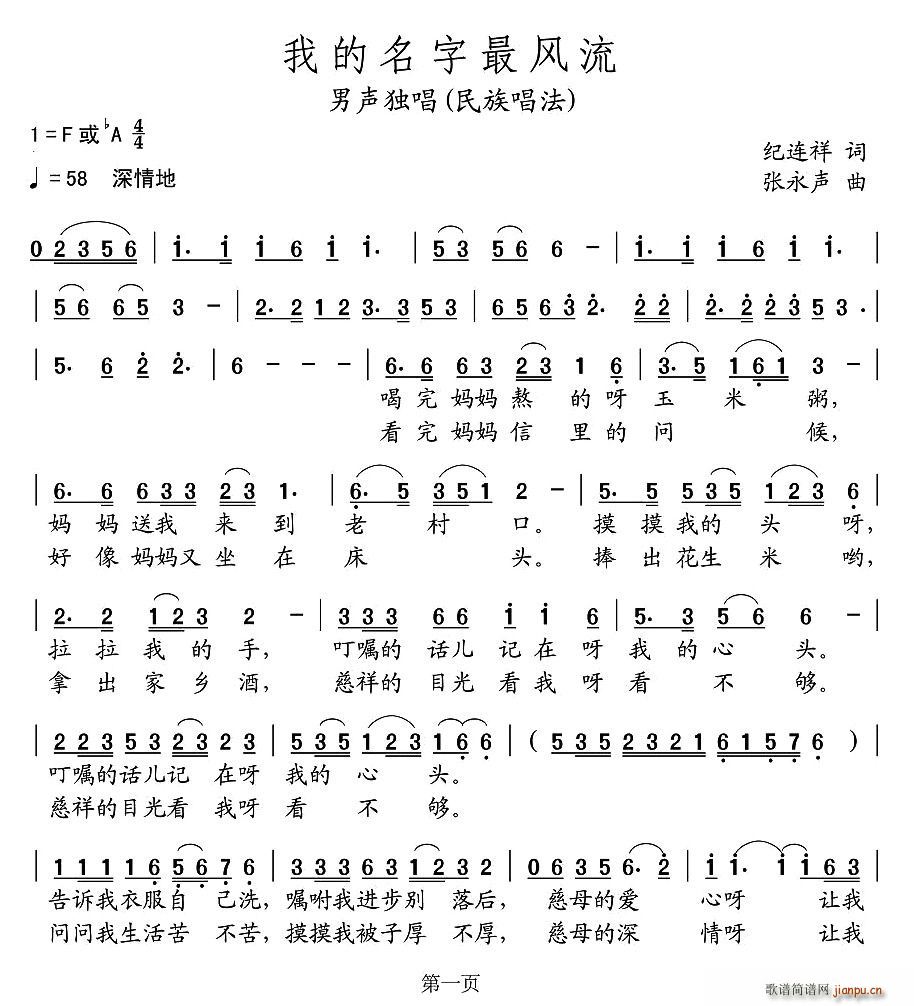 我的名字最风流
男声独唱(民族唱法)
1=F或♭A 4/4
纪连祥 词
♩=58 深情地
张永声 曲
0 2 3 5 6 | i. i i 6 i i. | 5 3 5 6 6 - | i. i i 6 i i. |
| 5 6 6 5 3 - | 2. 2 1 2 3. 3 5 3 | 6 5 6 3 2. 2 2 | 2. 2 2 3 5 3 . |
| 5. 6 2 2. | 6 - - - | 6. 6 6 3 2 3 1 6 | 3. 5 1 6 1 3 - |
喝完妈妈熬 的呀玉 米 粥,
看完妈妈信 里的问 候,
| 6. 6 6 3 3 2 3 1. | 6. 5 3 5 1 2 - | 5. 5 5 3 5 1 2 3 6 |
妈妈送我 来 到 老 村 口。 摸摸我的 头 呀,
好像妈妈又坐在床 头。 捧出花生 米 哟,
| 2. 2 1 2 3 2 - | 3 3 3 6 6 i i 6 | 5. 3 5 6 6 - |
拉拉我的手, 叮嘱的话儿记在呀我的心 头。
拿出家乡酒, 慈祥的目光看我呀看 不 够。
| 2 2 3 5 3 2 3 2 3 | 5 3 5 1 2 3 1 6 6 | ( 5 3 5 2 3 2 1 6 1 5 7 6 ) |
叮嘱的话儿记 在呀 我的 心 头。
慈祥的目光看 我呀 看 不 够。
| 1 1 1 1 6 5 6 7 6 | 3 3 3 6 3 1 2 3 2 | 0 6 3 5 6. 2 | i i. i 1 6 3 |
告诉我衣服自 己洗,嘱咐我进步别 落后, 慈母的爱 心呀 让我
问问我生活苦 不苦,摸摸我被子厚 不厚, 慈母的深 情呀 让我
第一页
歌谱简谱网
jianpu.cn